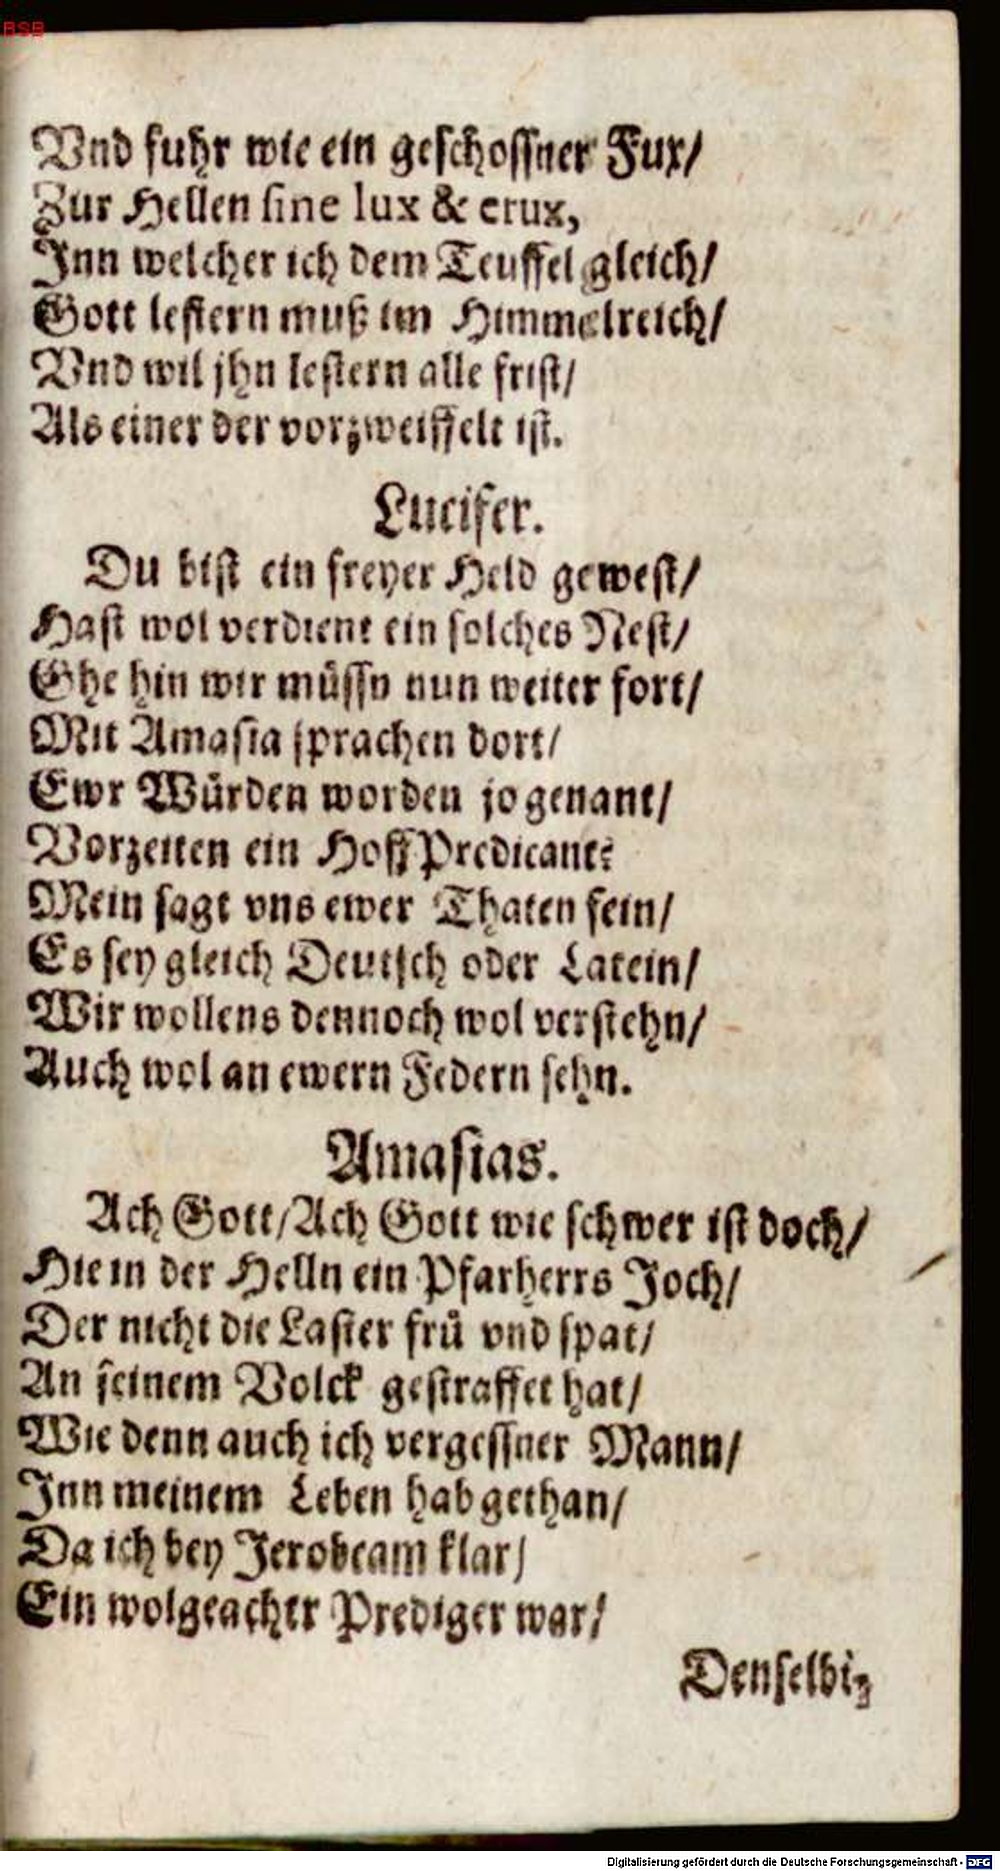 BSB
Vnd fuhr wie ein geschossner Fux/
Zur Hellen sine lux & crux,
Jnn welcher ich dem Teuffel gleich/
Gott lestern muß im Himmelreich/
Vnd wil jhn lestern alle frist/
Als einer der vorzweiffelt ist.
Lucifer.
Du bist ein freyer Held gewest/
Hast wol verdient ein solches Nest/
Ghe hin wir müssn nun weiter fort/
Mit Amasia sprachen dort/
Ewr Würden worden jo genant/
Vorzeiten ein Hoff Predicant:
Mein sagt vns ewer Thaten fein/
Es sey gleich Deutsch oder Latein/
Wir wollens dennoch wol verstehn/
Auch wol an ewern Federn sehn.
Amasias.
Ach Gott/Ach Gott wie schwer ist doch/
Hie in der Helln ein Pfarherrs Joch/
Der nicht die Laster frü vnd spat/
An seinem Volck gestraffet hat/
Wie denn auch ich vergessner Mann/
Jnn meinem Leben hab gethan/
Da ich bey Jerobeam klar/
Ein wolgeachtr Prediger war/
Denselbi-
Digitalisierung gefördert durch die Deutsche Forschungsgemeinschaft - DFG